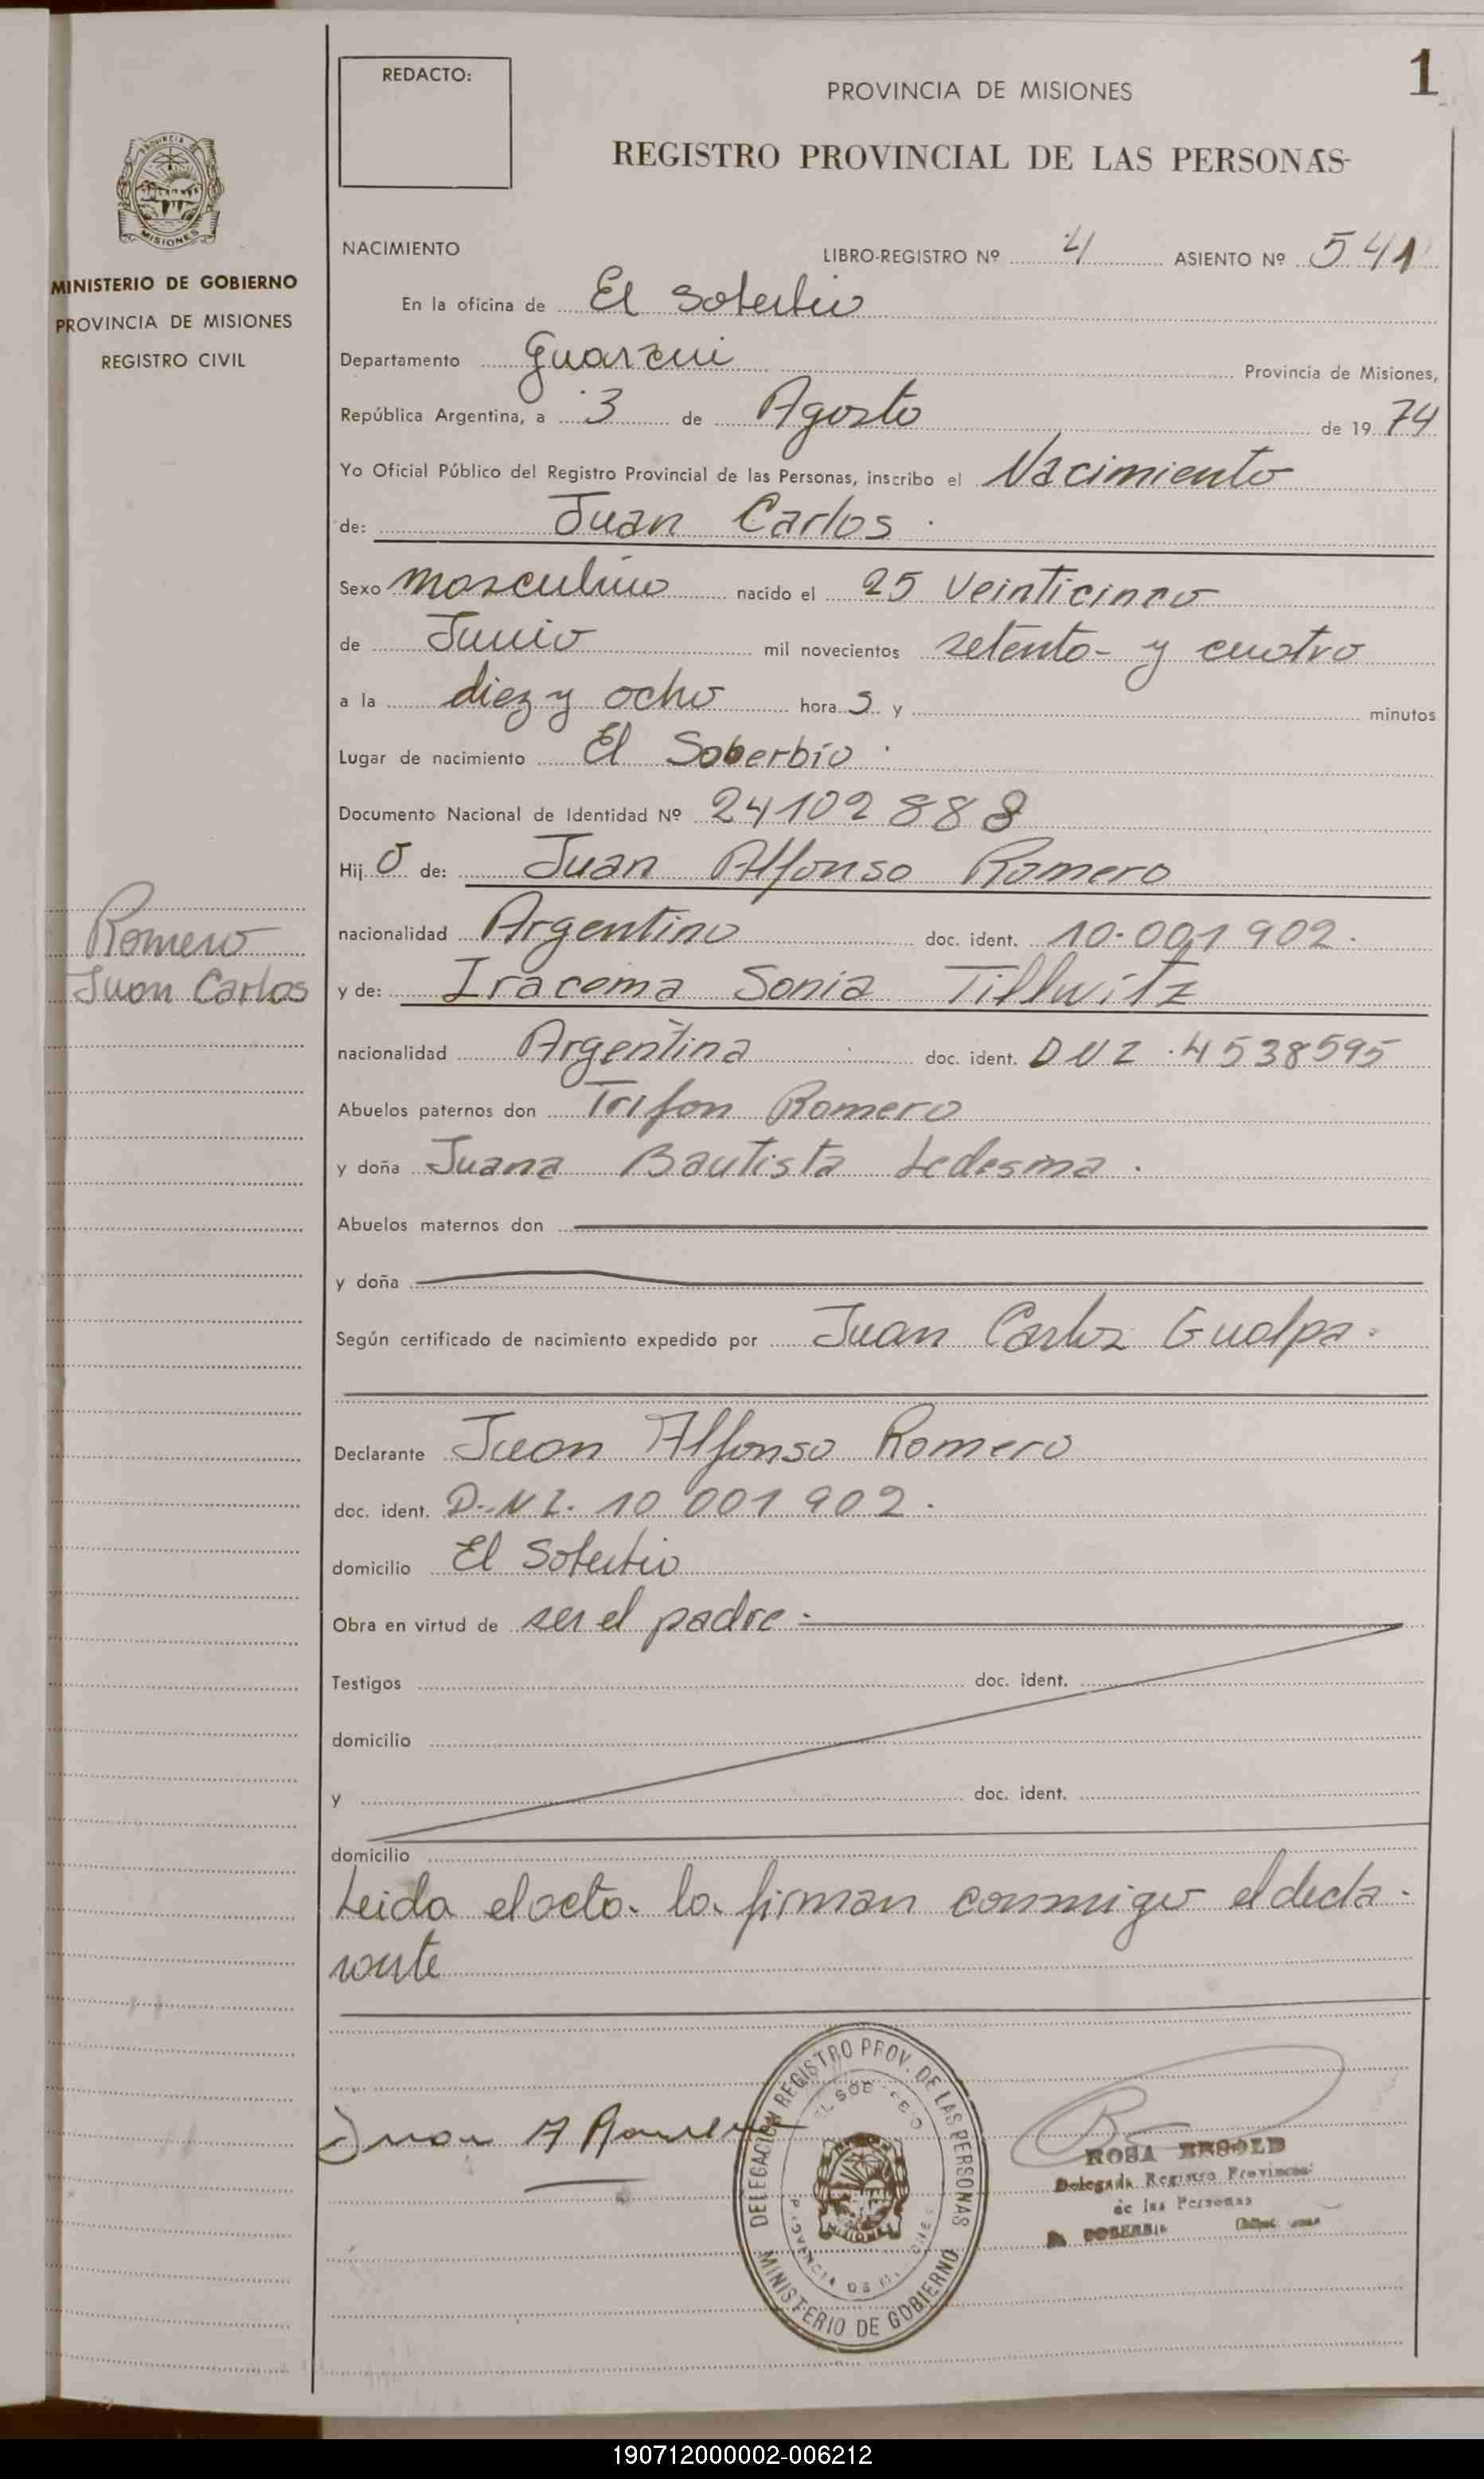 REDACTO:
PROVINCIA DE MISIONES
1
REGISTRO PROVINCIAL DE LAS PERSONAS
MINISTERIO DE GOBIERNO
PROVINCIA DE MISIONES
REGISTRO CIVIL
NACIMIENTO LIBRO-REGISTRO Nº 4 ASIENTO Nº 541
En la oficina de El Soberbio
Departamento Guarani Provincia de Misiones,
República Argentina, a 3 de Agosto de 19 74
Yo Oficial Público del Registro Provincial de las Personas, inscribo el Nacimiento
de: Juan Carlos.
Sexo masculino nacido el 25 Veinticinco
de Junio mil novecientos setenta y cuatro
a la diez y ocho hora s y minutos
Lugar de nacimiento El Soberbio
Documento Nacional de Identidad Nº 24102888
Hij o de: Juan Alfonso Romero
nacionalidad Argentino doc. ident. 10.001902.
Romero
Juan Carlos
y de: Iracema Sonia Tillwitz
nacionalidad Argentina doc. ident. DNI 4538595
Abuelos paternos don Trifon Romero
y doña Juana Bautista Ledesma.
Abuelos maternos don
y doña
Según certificado de nacimiento expedido por Juan Carlos Gualpa.
Declarante Juan Alfonso Romero
doc. ident. D.N.I. 10 001 902.
domicilio El Soberbio
Obra en virtud de ser el padre.
Testigos doc. ident.
domicilio
y doc. ident.
domicilio
Leida el acta la firman conmigo el decla-
rante
Juan A Romero
DELEGACION REGISTRO PROV. DE LAS PERSONAS
MINISTERIO DE GOBIERNO
PROVINCIA DE MISIONES
ROSA
Delegada Registro Provincial
de las Personas
190712000002-006212